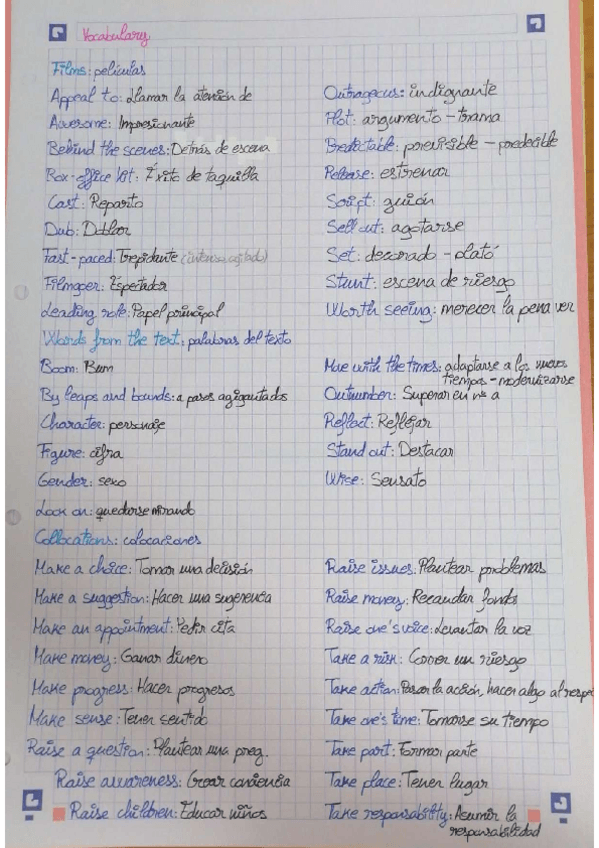 Vocabulary
Films: películas
Appeal to: Llamar la atención de
Awesome: Impresionante
Behind the scenes: Detrás de escena
Box-office hit: Éxito de taquilla
Cast: Reparto
Dub: Doblar
Fast-paced: Trepidante (intenso, agitado)
Filmgoer: Espectador
Leading role: Papel principal
Outrageous: indignante
Plot: argumento - trama
Predictable: previsible - predecible
Release: estrenar
Script: guión
Sell out: agotarse
Set: decorado - plató
Stunt: escena de riesgo
Worth seeing: merecer la pena ver
Words from the text: palabras del texto
Boom: Bum
By leaps and bounds: a pasos agigantados
Character: personaje
Figure: cifra
Gender: sexo
Look on: quedarse mirando
Move with the times: adaptarse a los nuevos
tiempos - modernizarse
Outnumber: Superar en nº a
Reflect: Reflejar
Stand out: Destacar
Wise: Sensato
Collocations: colocaciones
Make a choice: Tomar una decisión
Make a suggestion: Hacer una sugerencia
Make an appointment: Pedir cita
Make money: Ganar dinero
Make progress: Hacer progresos
Make sense: Tener sentido
Raise a question: Plantear una preg.
Raise awareness: Crear conciencia
Raise children: Educar niños
Raise issues: Plantear problemas
Raise money: Recaudar fondos
Raise one's voice: Levantar la voz
Take a risk: Correr un riesgo
Take action: Pasar la acción, hacer algo al respe
Take one's time: Tomarse su tiempo
Take part: Formar parte
Take place: Tener lugar
Take responsability: Asumir la
responsabilidad